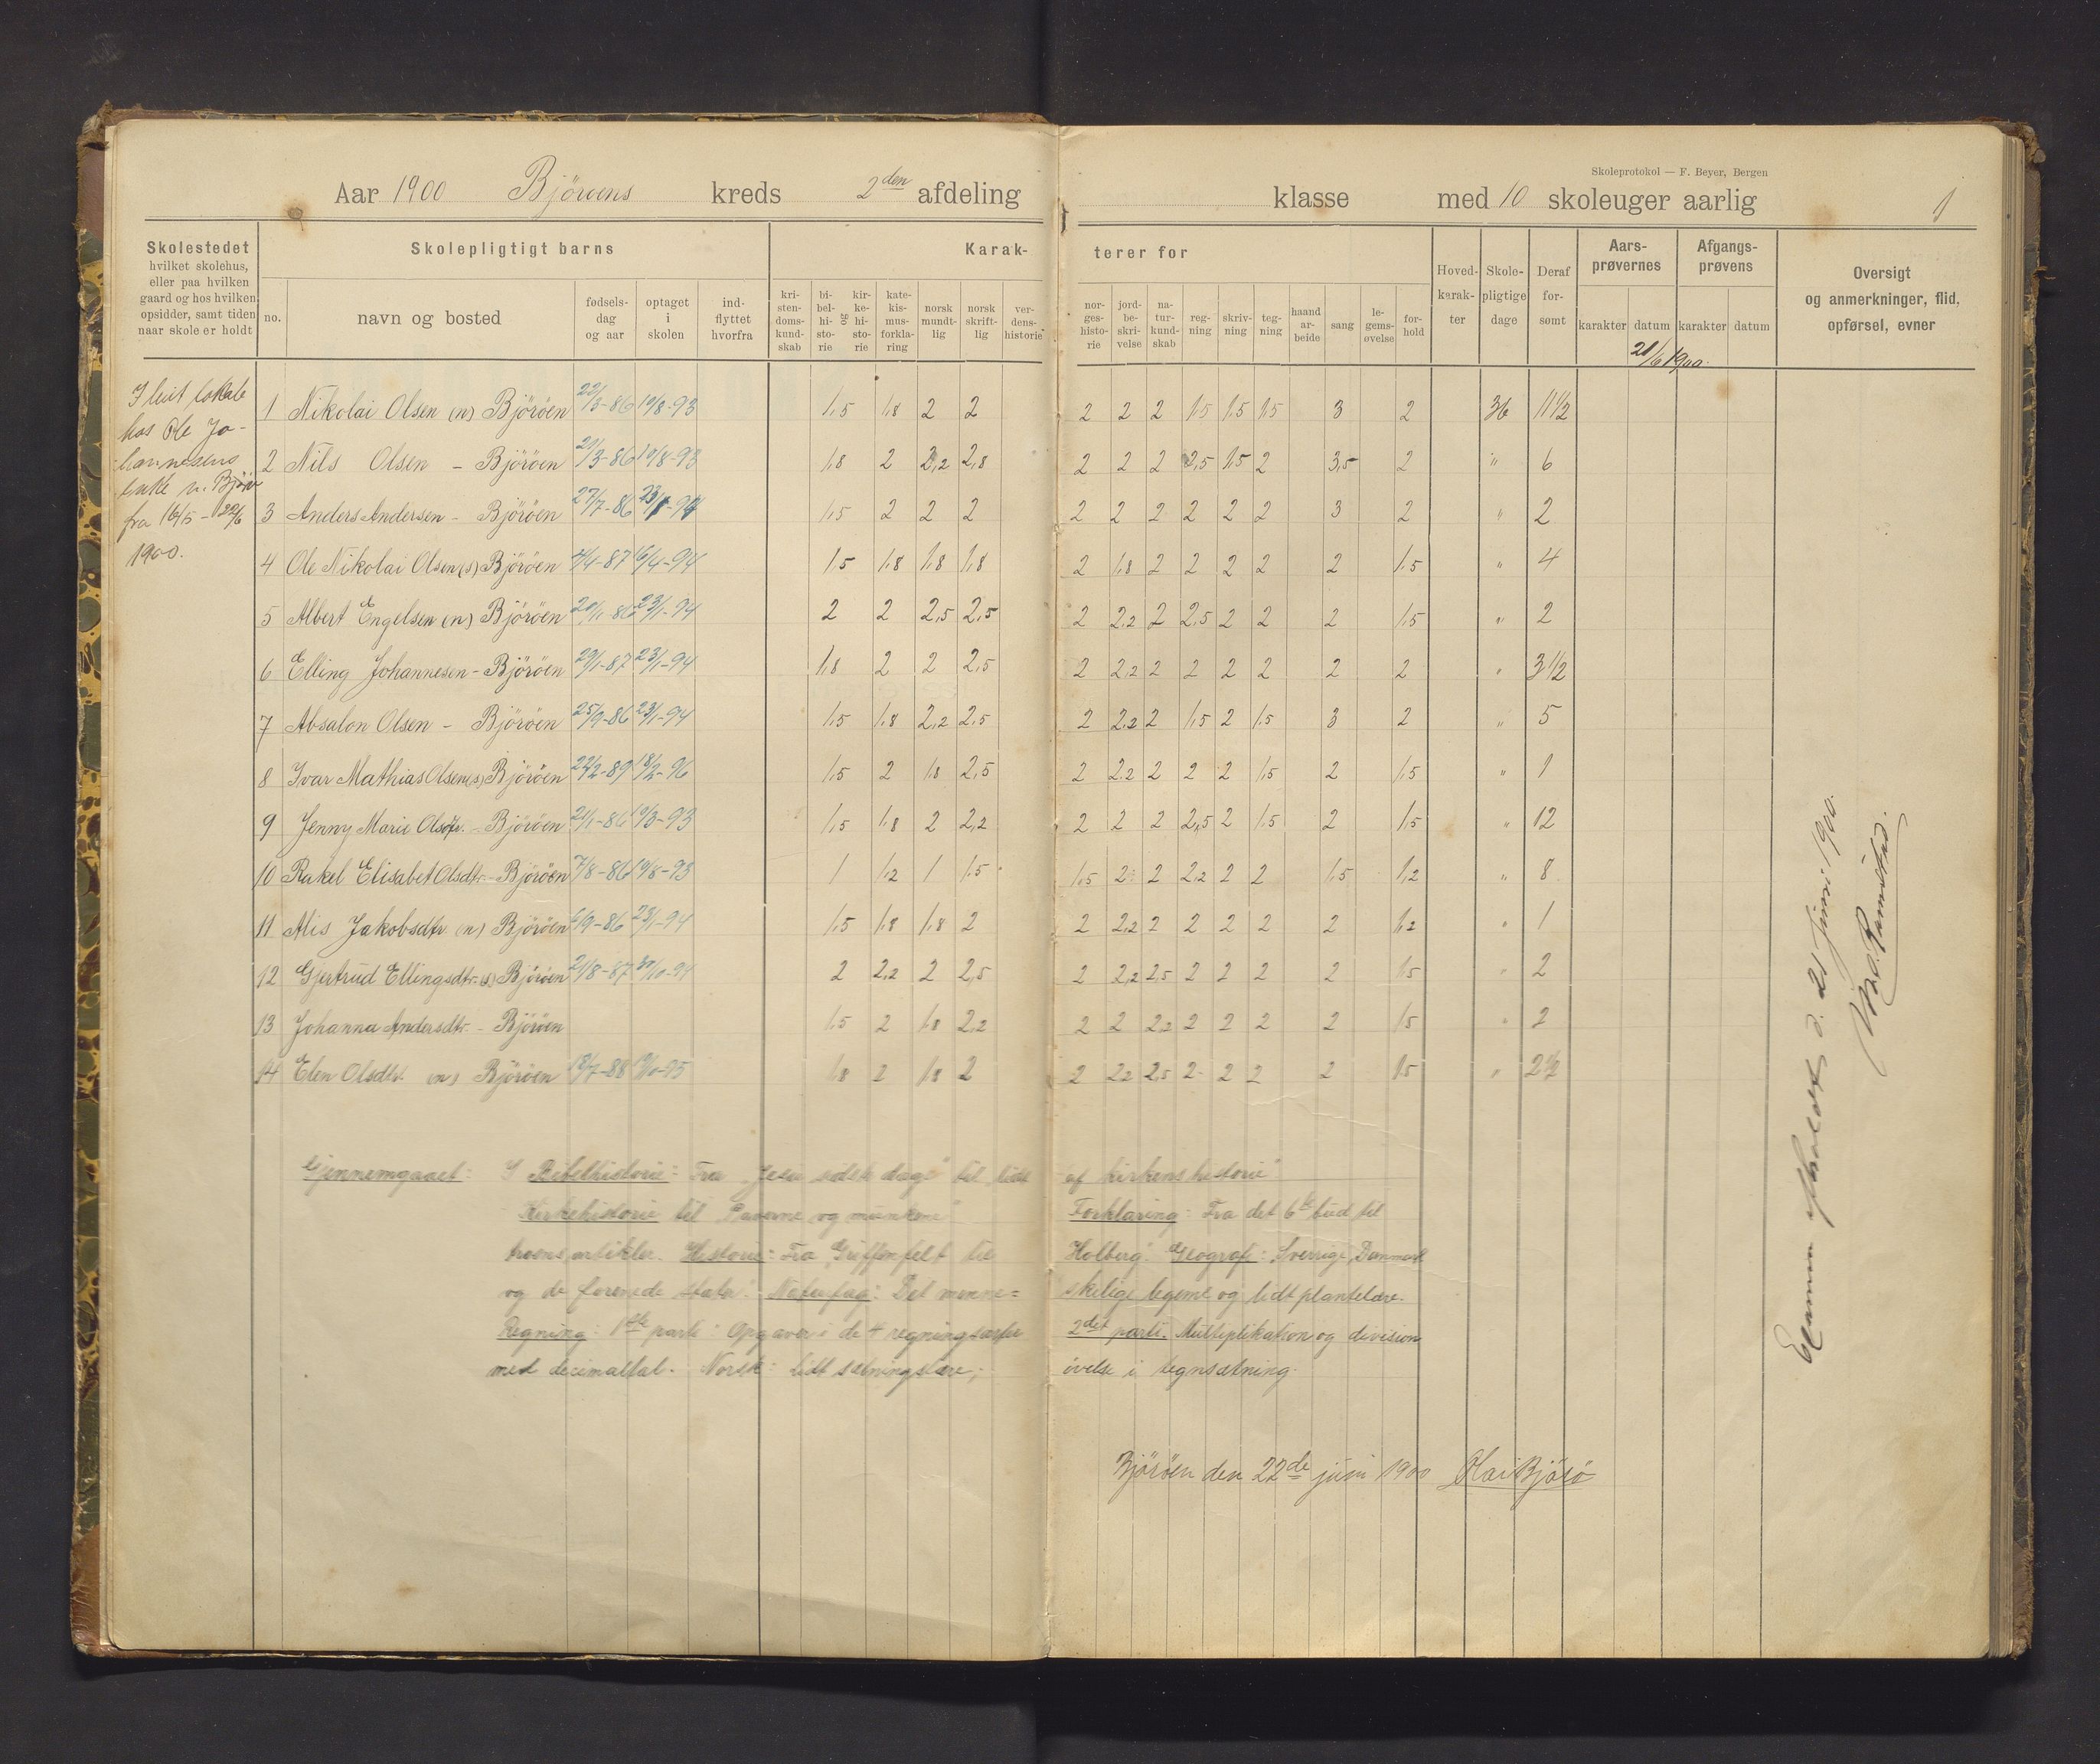 Skoleprotokol — F. Beyer, Bergen
Aar 1900 Björöens kreds 2den afdeling klasse med 10 skoleuger aarlig 1
Skolestedet hvilket skolehus, eller paa hvilken gaard og hos hvilken opsidder, samt tiden naar skole er holdt
Skolepligtigt barns
no. navn og bosted fødsels-dag og aar optaget i skolen ind-flyttet hvorfra
Karak- terer for
kri-sten-doms-kund-skab bi-bel-hi-sto-rie og kir-ke-hi-sto-rie kate-kis-mus-forkla-ring norsk mundt-lig norsk skrift-lig ver-dens-historie
nor-ges-histo-rie jord-be-skri-velse na-tur-kund-skab reg-ning skriv-ning teg-ning haand ar-beide sang le-gems-øvelse for-hold
Hoved-karak-ter Skole-pligtige dage Deraf for-sømt
Aars-prøvernes karakter datum Afgangs-prøvens karakter datum
Oversigt og anmerkninger, flid, opførsel, evner
21/6 1900.
I leiet lokale
hos Ole Jo-
hannesens
enke n. Björö
fra 16/5 - 22/6
1900.
1 Nikolai Olsen (n) Björöen 22/3-86 10/8-93 1,5 1,8 2 2 2 2 2 1,5 1,5 1,5 3 2 36 11 1/2
2 Nils Olsen - Björöen 21/3-86 10/8-93 1,8 2 2,2 2,8 2 2 2 2,5 1,5 2 3,5 2 " 6
3 Anders Andersen - Björöen 27/7-86 23/1-94 1,5 2 2 2 2 2 2 2 2 2 3 2 " 2
4 Ole Nikolai Olsen (s) Björöen 4/4-87 16/4-94 1,5 1,8 1,8 1,8 2 1,8 2 2 2 2 2 1,5 " 4
5 Albert Engelsen (n) Björöen 20/11-86 23/1-94 2 2 2,5 2,5 2 2,2 2 2,5 2 2 2 1,5 " 2
6 Elling Johannesen - Björöen 29/1-87 23/1-94 1,8 2 2 2,5 2 2,2 2 2 2 2 2 2 " 3 1/2
7 Absalon Olsen - Björöen 25/9-86 23/1-94 1,5 1,8 2,2 2,5 2 2,2 2 1,5 2 1,5 3 2 " 5
8 Ivar Mathias Olsen (s) Björöen 22/2-89 18/2-96 1,5 2 1,8 2,5 2 2,2 2 2 2 1,5 2 1,5 " 1
9 Jenny Marie Olsdtr. - Björöen 21/1-86 10/3-93 1,5 1,8 2 2,2 2 2 2 2,5 2 1,5 2 1,5 " 12
10 Rakel Elisabet Olsdtr. - Björöen 7/8-86 10/8-93 1 1,2 1 1,5 1,5 2 2 2,2 2 2 1,5 1,2 " 8
11 Alis Jakobsdtr (n) Björöen 6/9-86 23/1-94 1,5 1,8 1,8 2 2 2,2 2 2 2 2 2 1,2 " 1
12 Gjertrud Ellingsdtr. (s) Björöen 21/8-87 30/10-94 2 2,2 2 2,5 2 2,2 2,5 2 2 2 2 1,5 " 2
13 Johanna Andersdtr. - Björöen 1,5 2 1,8 2,2 2 2 2,2 2 2 2 2 1,5 " 2
14 Elen Olsdtr. (n) Björöen 18/7-88 10/10-95 1,8 2 1,8 2 2 2,2 2,5 2 2 2 2 1,5 " 2 1/2
Gjennemgaaet: I Bibelhistorie: Fra "Jesu sidste dage" til "lidt af kirkens historie"
Kirkehistorie til "Paverne og munkene" Forklaring: Fra det 6te bud til
troens artikler. Historie: Fra "Griffenfelt" til Holberg. Geografi: Sverrige, Danmark
og de forenede stater. Naturfag: Det menne= skelige legeme og lidt plantelære.
Regning: 1ste parti: Opgaver i de 4 regningsarter 2det parti. Multiplikation og division
med decimaltal. Norsk: Lidt sætningslære, övelse i tegnsætning.
Björöen den 22de juni 1900 Olai Björö
Examen afholdt d. 21 Juni 1900.